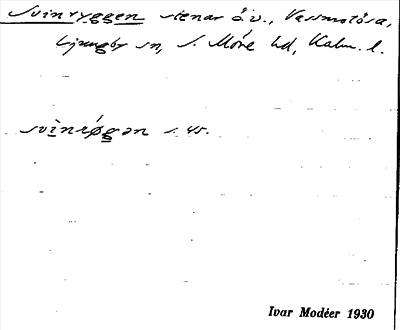 Svinryggen stenar ö.v., Vassmolösa,
Ljungby sn, S. Möre hd, Kalm. l.
svinrøgən s. 45.
Ivar Modéer 1930